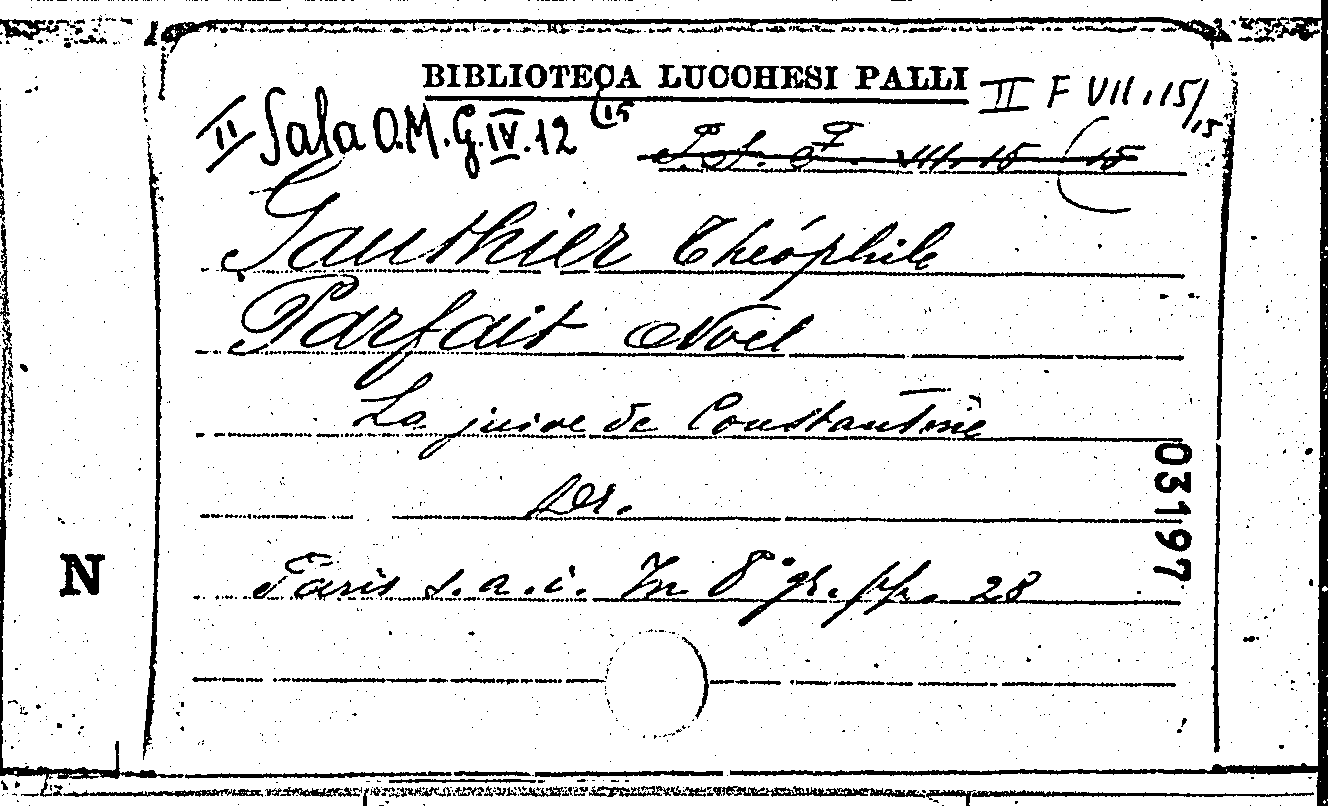 BIBLIOTECA LUCCHESI PALLI
II F VII. 15/15
II Sala O.M. G. IV. 12 (15
F. VII. 15 (15
Gauthier Théophile
Parfait Noël
La juive de Constantine
Dr.
Paris s. a. i. In 8° gr. pp. 28
03197
N